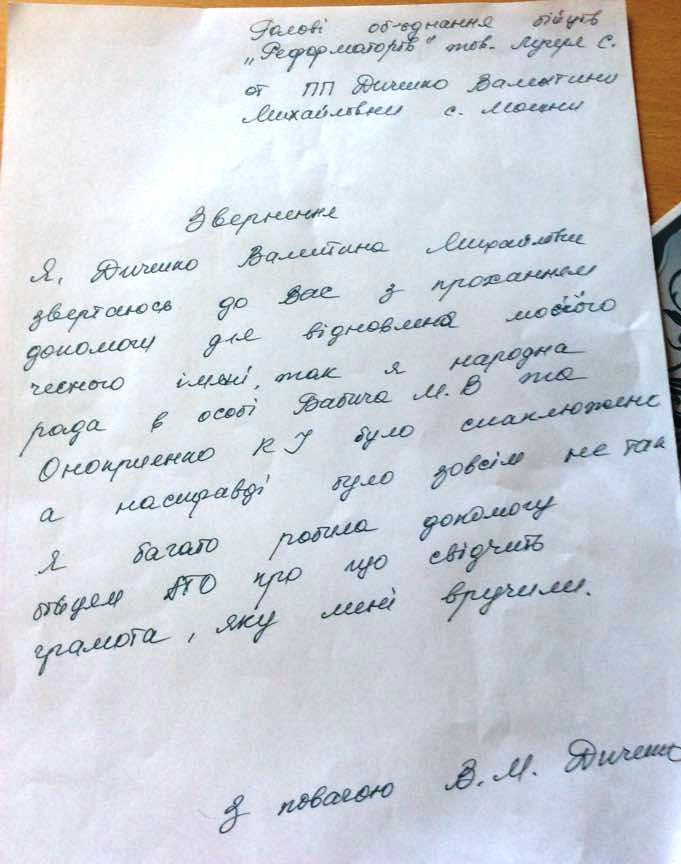 Голові об-єднання бійців
„Реформаторів" тов. Лучер С.
от ПП Диченко Валентини
Михайлівни с. Мошни
Звернення
Я, Диченко Валентина Михайлівн
звертаюсь до Вас з проханнем
допомоги для відновлена моєого
чесного імені, так я народна
рада в особі Бабича М. В та
Оноприенко К І було сплюжене
а насправді було зовсім не так
Я багато робила допомогу
бійцям АТО про що свідчить
грамота, яку мені вручили.
З повагою В. М. Диченко